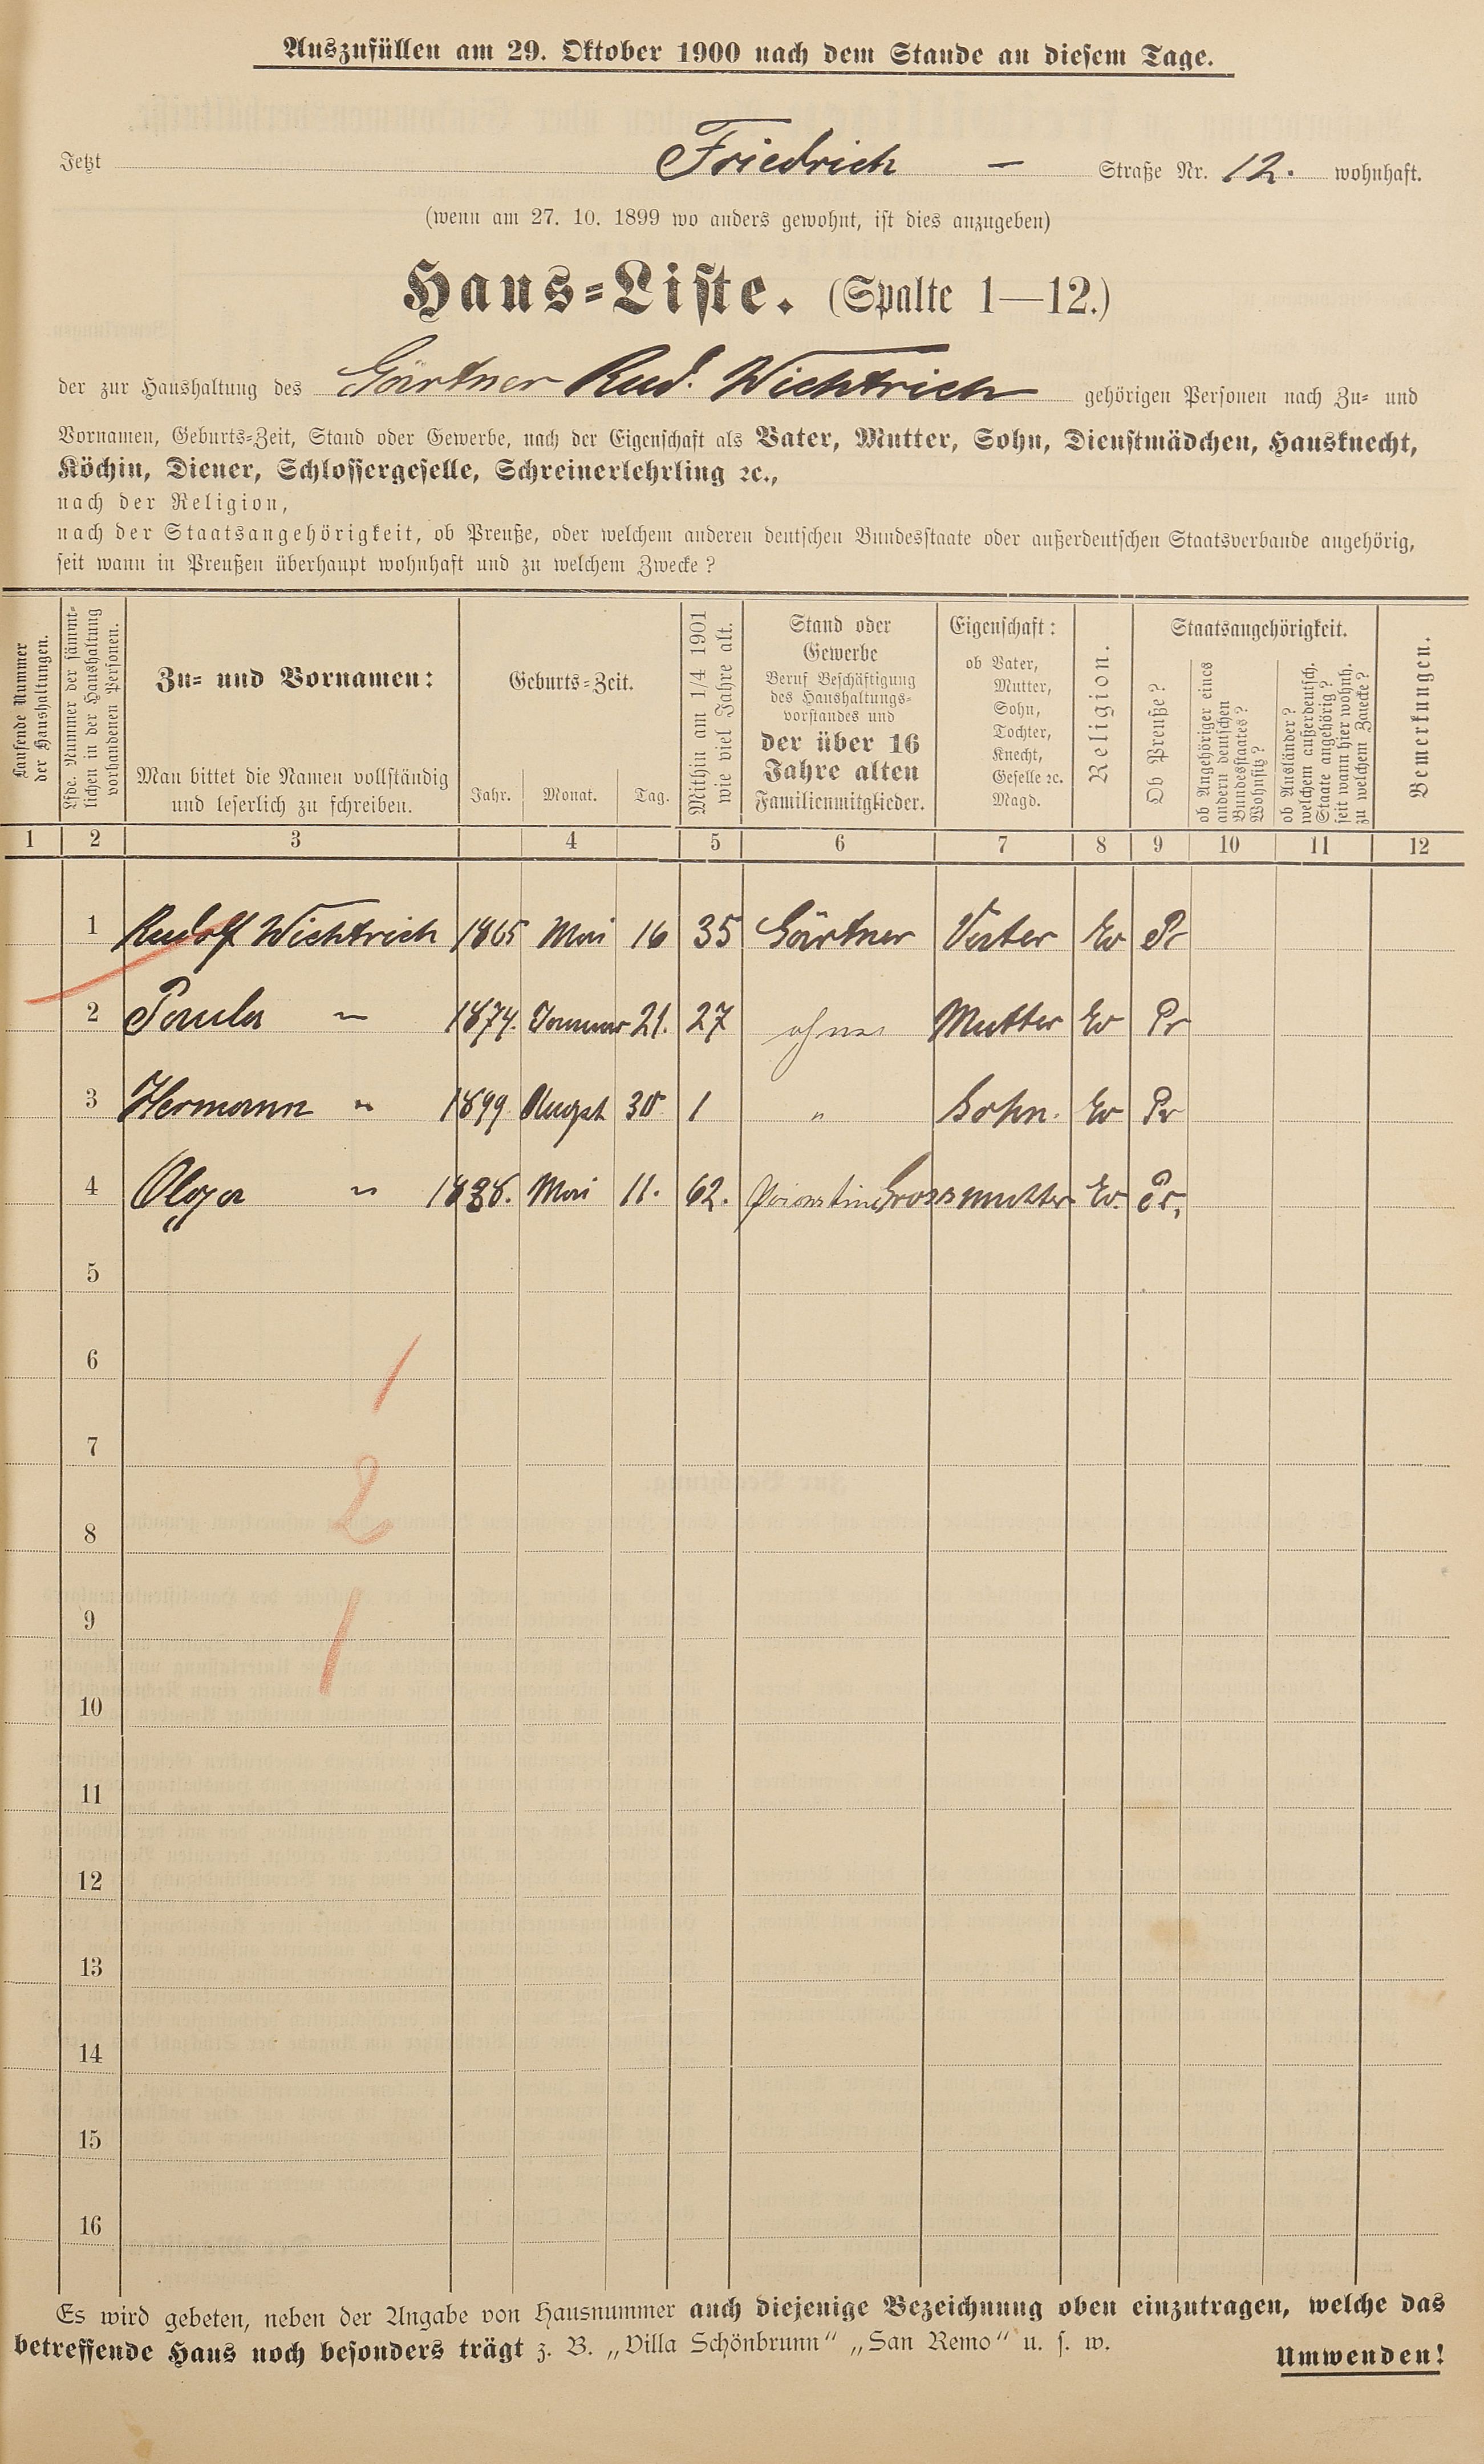 Auszufüllen am 29. Oktober 1900 nach dem Stande an diesem Tage.
Jetzt Friedrich – Straße Nr. 12. wohnhaft.
(wenn am 27. 10. 1899 wo anders gewohnt, ist dies anzugeben)
Haus-Liste. (Spalte 1—12.)
der zur Haushaltung des Gärtner Rud. Wichtrich gehörigen Personen nach Zu- und
Vornamen, Geburts-Zeit, Stand oder Gewerbe, nach der Eigenschaft als Vater, Mutter, Sohn, Dienstmädchen, Hausknecht,
Köchin, Diener, Schlossergeselle, Schreinerlehrling ꝛc.,
nach der Religion,
nach der Staatsangehörigkeit, ob Preuße, oder welchem anderen deutschen Bundesstaate oder außerdeutschen Staatsverbande angehörig,
seit wann in Preußen überhaupt wohnhaft und zu welchem Zwecke?
Laufende Nummer
der Haushaltungen.
Lfde. Nummer der sämmt-
lichen in der Haushaltung
vorhandenen Personen.
Zu- und Vornamen:
Man bittet die Namen vollständig
und leserlich zu schreiben.
Geburts-Zeit.
Jahr. Monat. Tag.
Mithin am 1/4 1901
wie viel Jahre alt.
Stand oder
Gewerbe
Beruf Beschäftigung
des Haushaltungs-
vorstandes und
der über 16
Jahre alten
Familienmitglieder.
Eigenschaft:
ob Vater,
Mutter,
Sohn,
Tochter,
Knecht,
Geselle ꝛc.
Magd.
Religion.
Staatsangehörigkeit.
Ob Preuße?
ob Angehöriger eines
andern deutschen
Bundesstaates?
Wohnsitz?
ob Ausländer?
welchem außerdeutsch.
Staate angehörig?
seit wann hier wohnh.
zu welchem Zwecke?
Bemerkungen.
1 2 3 4 5 6 7 8 9 10 11 12
1 Rudolf Wichtrich 1865 Mai 16 35 Gärtner Vater Ev Pr
2 Paula " 1874. Januar 21. 27 ohne Mutter Ev Pr
3 Hermann " 1899. Augst 30 1 " Sohn. Ev Pr
4 Olga " 1838. Mai 11. 62. Grossmutter Ev. Pr.
5
6
1
7
2
8
9
1
10
11
12
13
14
15
16
Es wird gebeten, neben der Angabe von Hausnummer auch diejenige Bezeichnung oben einzutragen, welche das
betreffende Haus noch besonders trägt z. B. „Villa Schönbrunn“ „San Remo“ u. s. w.
Umwenden!